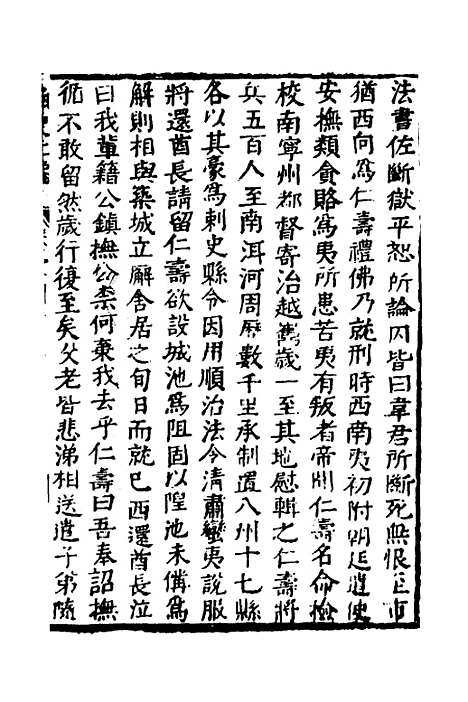 法書佐斷獄平恕所論囚皆曰韋君所斷死無恨至市
猶西向爲仁壽禮佛乃就刑時西南夷初附朝廷遣使
安撫類貪賂爲夷所患苦夷有叛者帝聞仁壽名命檢
校南寧州都督寄治越嶲歲一至其地慰輯之仁壽將
兵五百人至南洱河周歷數千里承制置八州十七縣
各以其豪爲刺史縣令因用順治法令清肅蠻夷說服
將還酋長請留仁壽欲設城池爲阻固以隍池未備爲
解則相與築城立廨舍居之旬日而就已西還酋長泣
曰我輩籍公鎮撫公柰何棄我去乎仁壽曰吾奉詔撫
循不敢留然歲行復至矣父老皆悲涕相送遣子弟隨